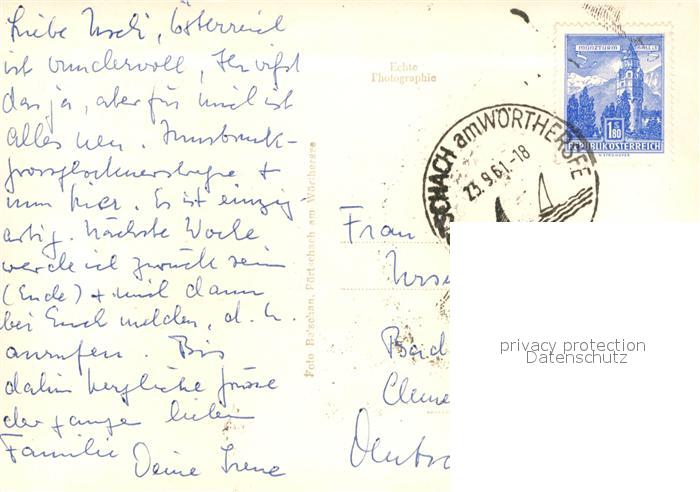 Liebe Uschi, Österreich
ist wundervoll, Ihr wißt
das ja, aber für mich ist
alles neu. Innsbruck-
Grossglocknerstrasse +
nun hier. Es ist einzig-
artig. Nächste Woche
werde ich zurück sein
(Ende) + mich dann
bei Euch melden, d. h.
anrufen. Bis
dahin herzliche Grüsse
der ganzen lieben
Familie Deine Irene
Echte
Photographie
Foto Pörtschach am Wörthersee
MÜNZTURM HALL i.T.
S
1.80
REPUBLIK ÖSTERREICH
SCHACH am WÖRTHERSEE
23.9.61.-18
Frau
Urs
Bad
Cleme
Deutsc
privacy protection
Datenschutz